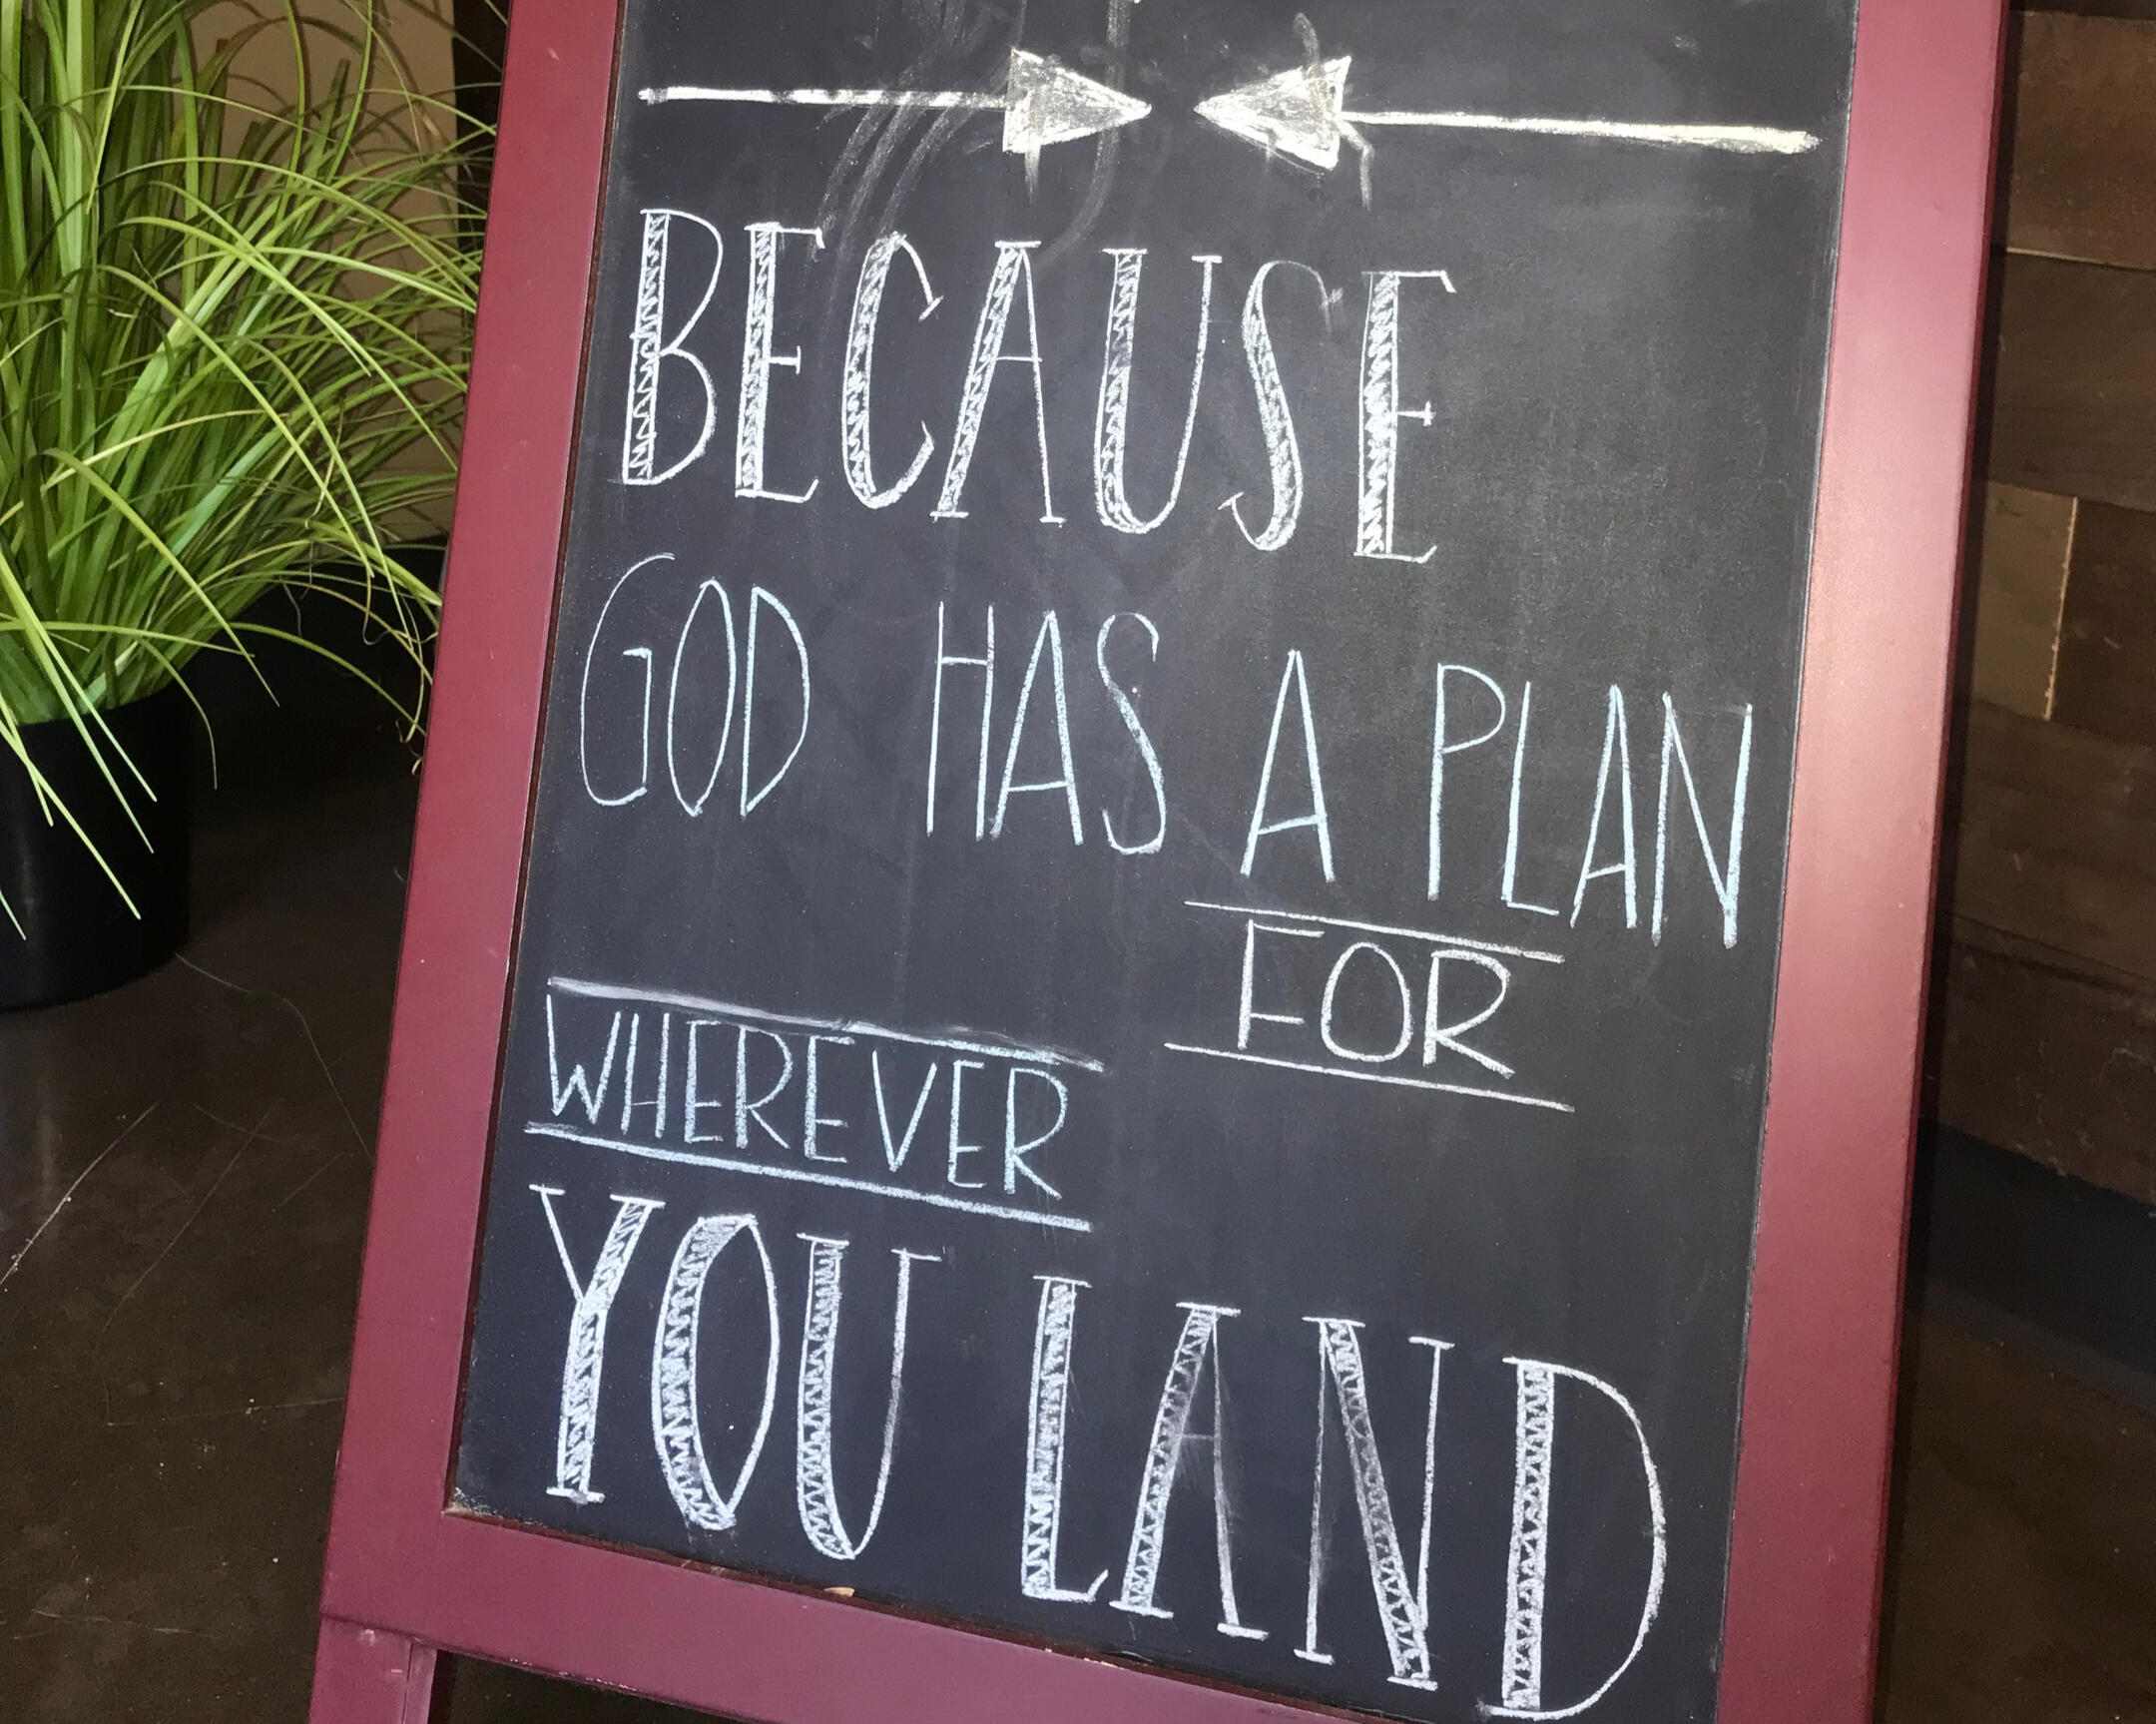 BECAUSE
GOD HAS A PLAN
FOR
WHEREVER
YOU LAND